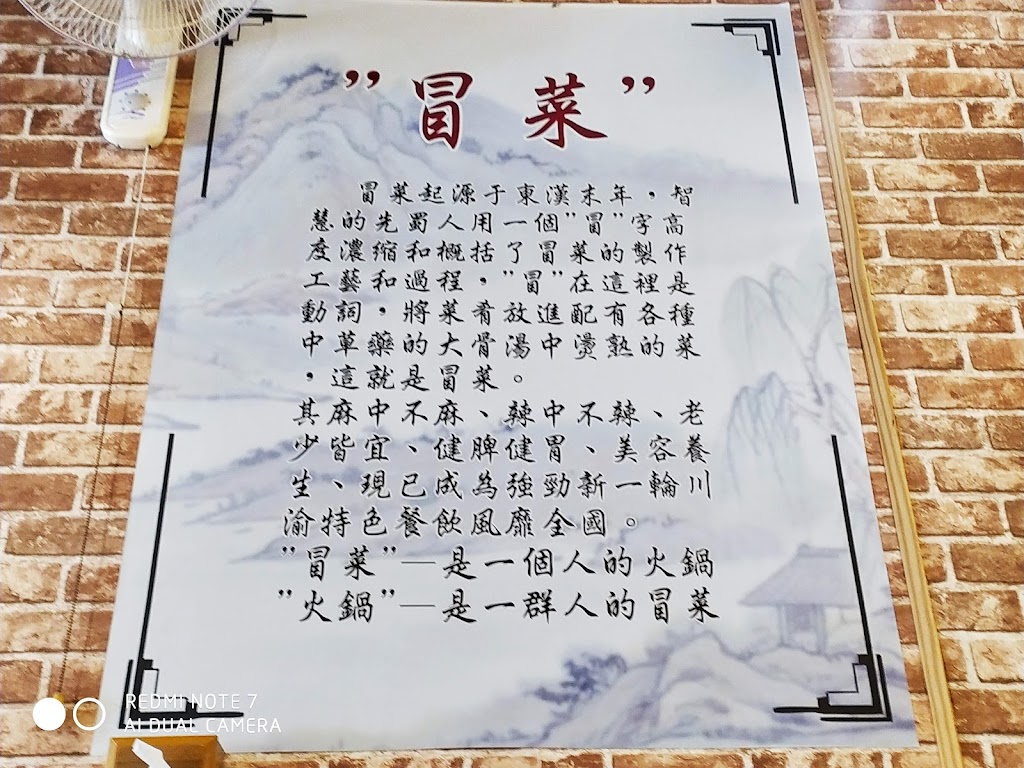 ”冒 菜”
冒菜起源于東漢末年，智
慧的先蜀人用一個”冒”字高
度濃缩和概括了冒菜的製作
工藝和過程，”冒”在這裡是
動詞，將菜肴放進配有各種
中草藥的大骨湯中燙熟的菜
，這就是冒菜。
其麻中不麻、辣中不辣、老
少皆宜、健脾健胃、美容養
生、現已成為強勁新一輪川
渝特色餐飲風靡全國。
”冒菜”—是一個人的火鍋
”火鍋”—是一群人的冒菜
REDMI NOTE 7
AI DUAL CAMERA